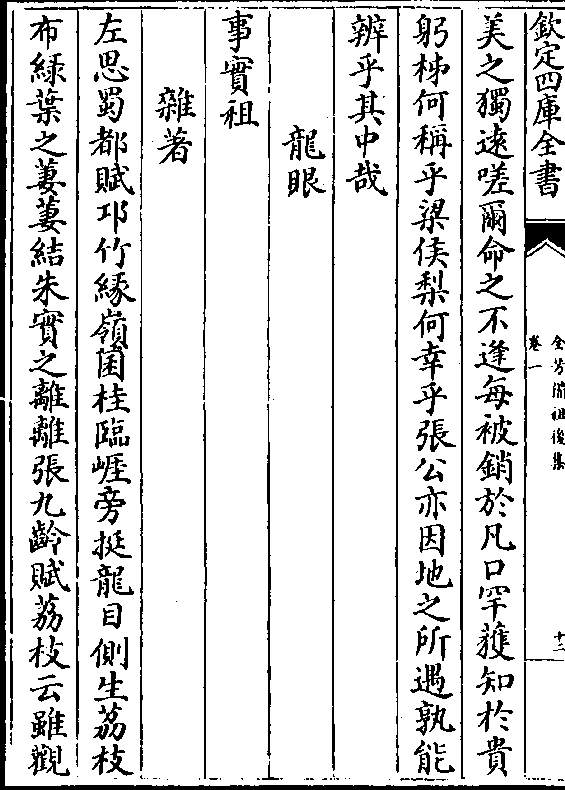 欽定四庫全書
全芳備祖後集
卷一
十二
美之獨遠嗟爾命之不逢每被銷於凡口罕獲知於貴
躬柹何稱乎梁侯梨何幸乎張公亦因地之所遇孰能
辨乎其中哉
龍眼
事實祖
雜著
左思蜀都賦邛竹緣嶺菌桂臨崕旁挺龍目側生荔枝
布緑葉之萋萋結朱實之離離張九齡賦荔枝云雖觀